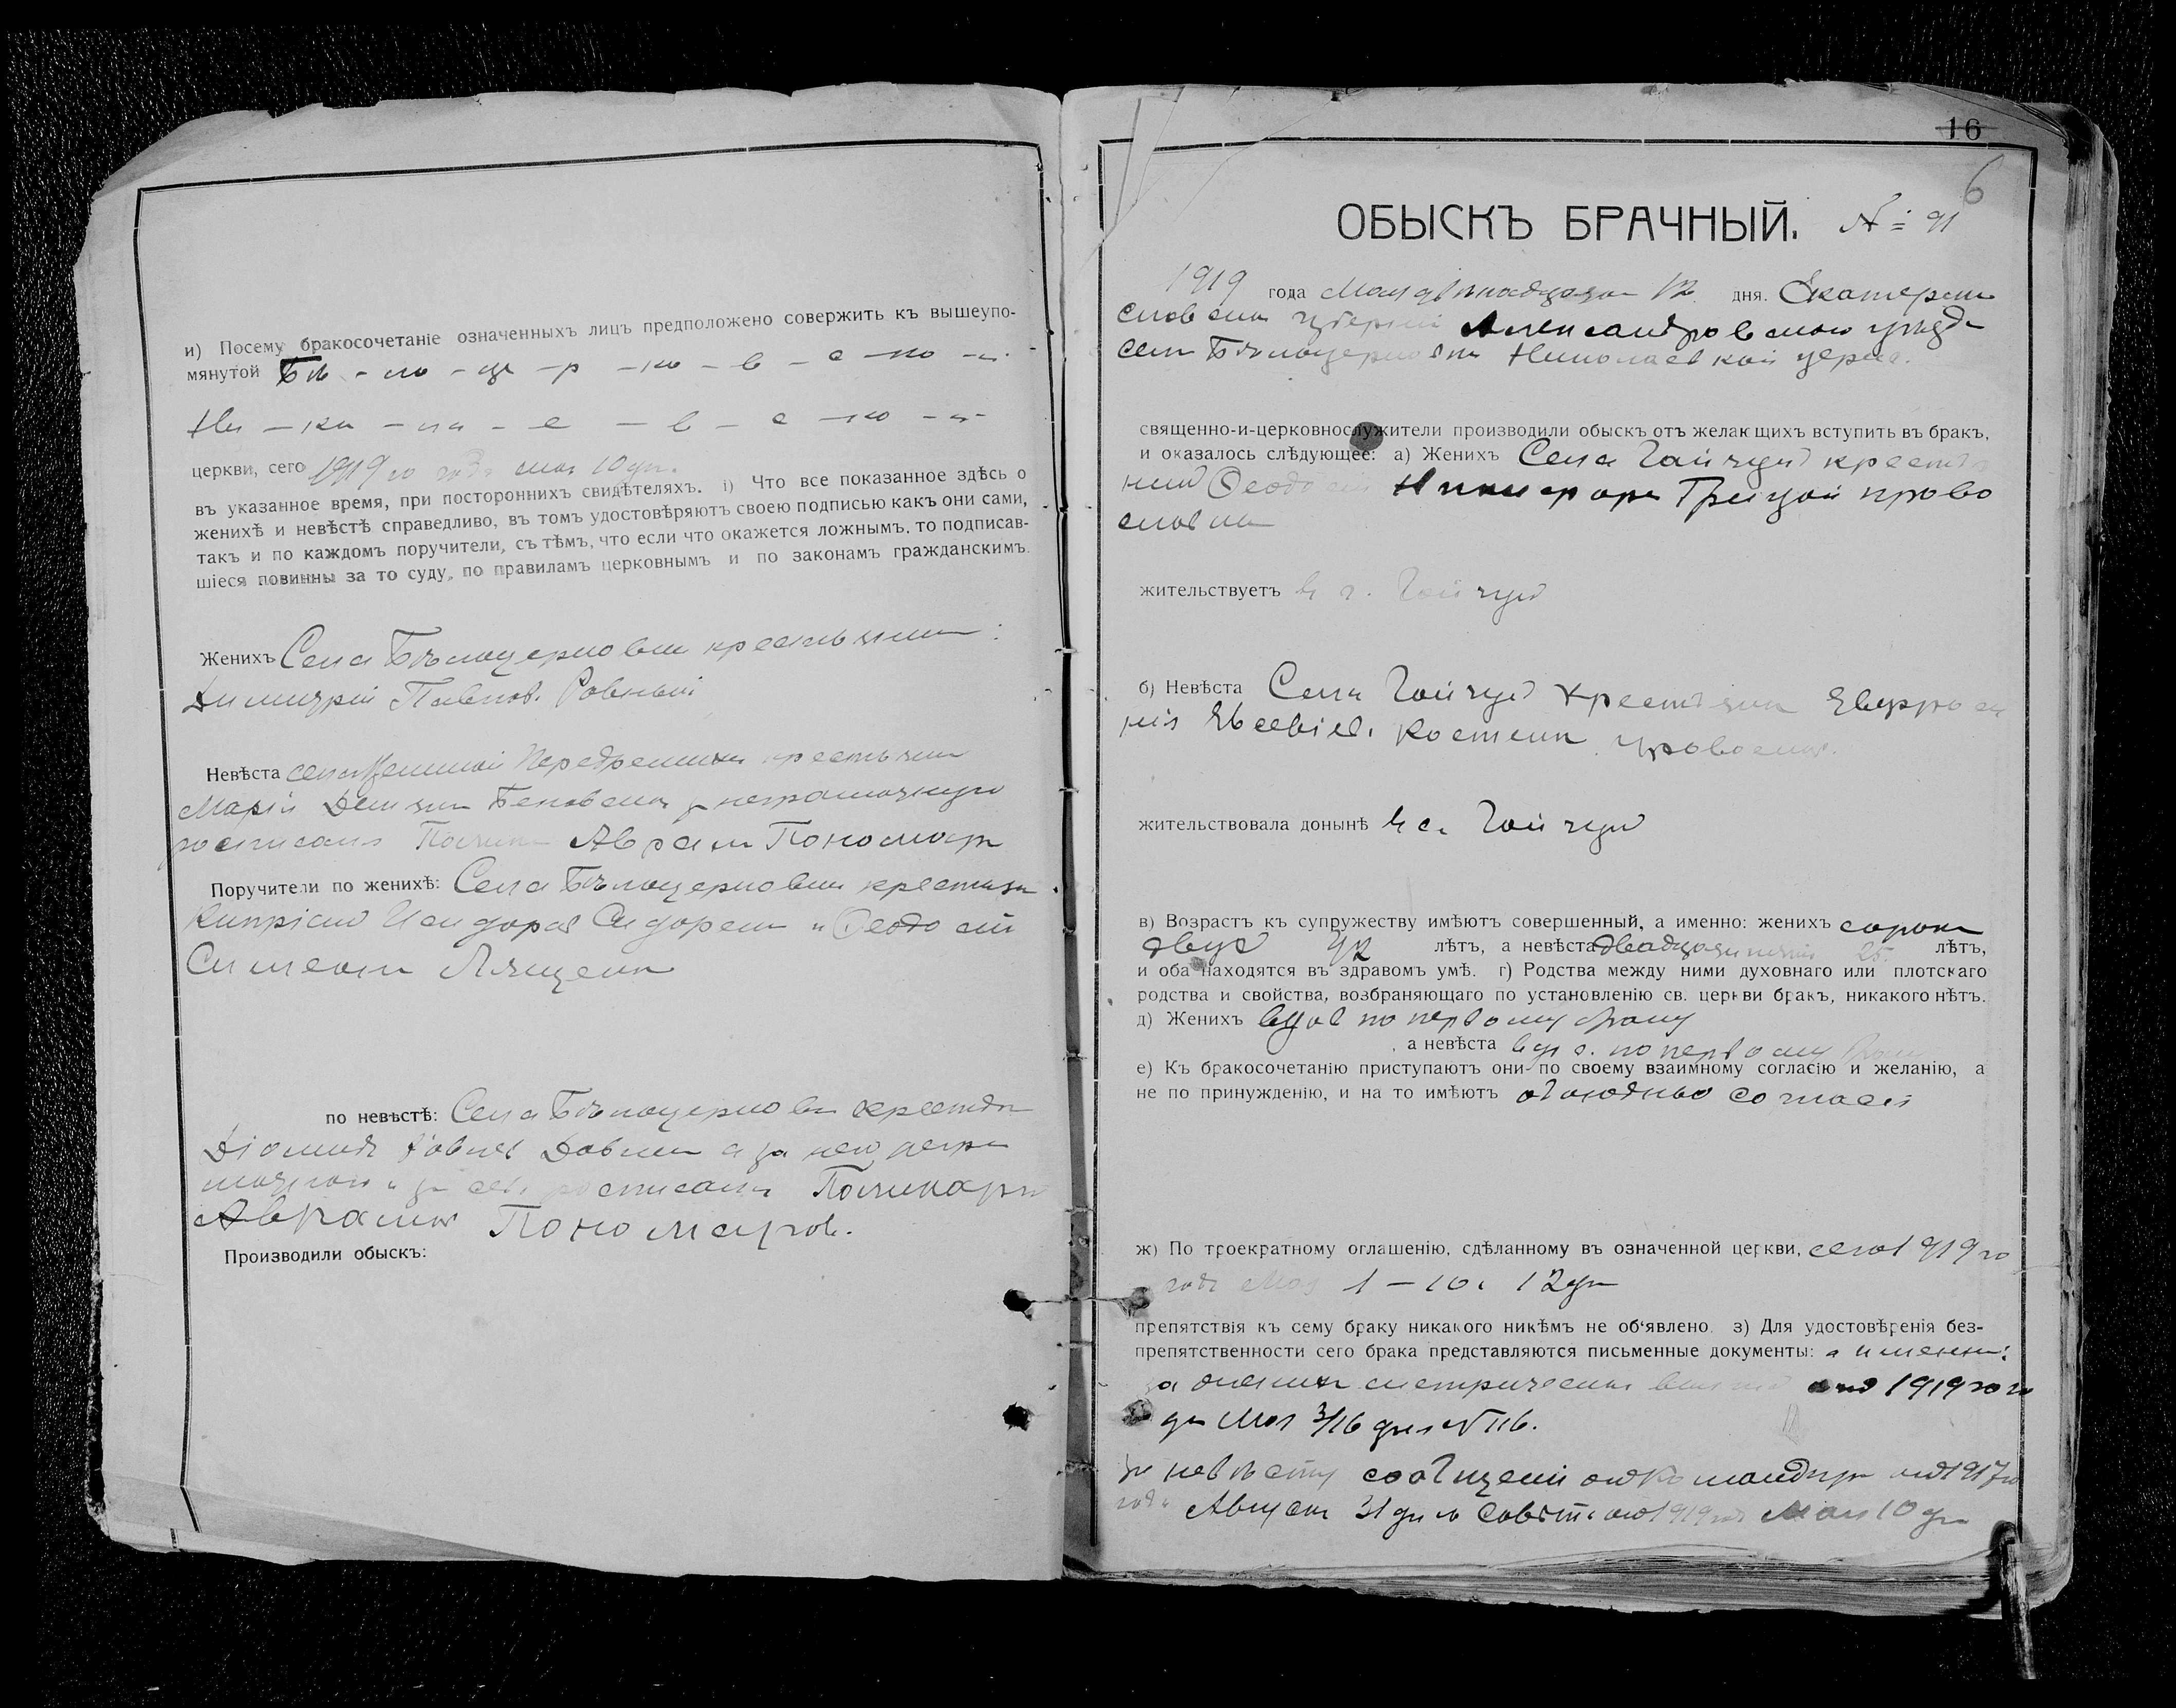 и) Посему бракосочетаніе означенныхъ лицъ предположено совержить къ вышеупо-
мянутой Бѣ - ло - це - р - ко - в - с - ко - й
Ни - ко - ла - е - в - с - ко - й
церкви, сего 1919 го года мая 10 дн.
въ указанное время, при постороннихъ свидѣтеляхъ. і) Что все показанное здѣсь о
женихѣ и невѣстѣ справедливо, въ томъ удостовѣряютъ своею подписью какъ они сами,
такъ и по каждомъ поручители, съ тѣмъ, что если что окажется ложнымъ, то подписав-
шіеся повинны за то суду, по правиламъ церковнымъ и по законамъ гражданскимъ.
Женихъ Села Бѣлоцерковки крестьянин:
Димитрій Павлов. Ровный
Невѣста села крестьян
Марія неграмотную
росписался Аврам Пономар
Поручители по женихѣ: Села Бѣлоцерковки крестьян
Кипріан Исидоров Сидорен и Ѳеодосій
Симеон Лященк
по невѣстѣ: Села Бѣлоцерковки крестья
Діомид а за него негра
мотнаго и за себя росписался
Аврамъ Пономаров.
Производили обыскъ:
16
6
ОБЫСКЪ БРАЧНЫЙ. № 91
1919 года Мая двѣнадцатаго 12 дня. Екатерино
славской губерніи Александровскаго уѣзда
села Бѣлоцерковки Николаевской церкви.
священно-и-церковнослужители производили обыскъ отъ желающихъ вступить въ бракъ,
и оказалось слѣдующее: а) Женихъ Села Гайчул крестья
нин Ѳеодосій Никифоров Грицай право
славна
жительствуетъ в с. Гайчул
б) Невѣста Села Гайчул крестьян Евфроси
нія Евсевіев. Костенк правосл.
жительствовала донынѣ в с. Гайчул
в) Возрастъ къ супружеству имѣютъ совершенный, а именно: женихъ сорок
двух 42 лѣтъ, а невѣста двадцати пяти 25. лѣтъ,
и оба находятся въ здравомъ умѣ. г) Родства между ними духовнаго или плотскаго
родства и свойства, возбраняющаго по установленію св. церкви бракъ, никакого нѣтъ.
д) Женихъ вдов по первому браку
а невѣста вдов. по первому браку
е) Къ бракосочетанію приступаютъ они по своему взаимному согласію и желанію, а
не по принужденію, и на то имѣютъ обоюдное согласіе
ж) По троекратному оглашенію, сдѣланному въ означенной церкви, сего 1919 го
года Мая 1 – 10 и 12 дн
препятствія къ сему браку никакого никѣмъ не об‘явлено. з) Для удостовѣренія без-
препятственности сего брака представляются письменные документы: а именно:
за жених метрическая от 1919 го го
да Мая 3/16 дня № 116.
за невѣсту сообщеніе от командир от 1917 го
года Август 31 дня от 1919 год Мая 10 дн